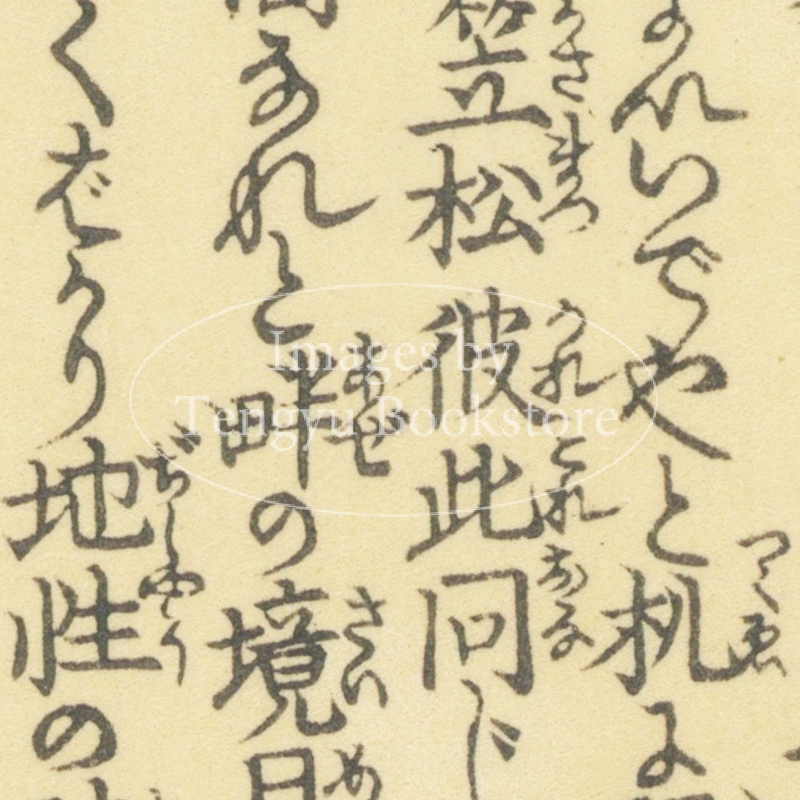 いでやと机
つくゑ
笠松彼此同じ
かさまつ
かれこれおな
なれと畔の境目
あぜ
さいめ
くばかり地性の
ぢしやう
Images by
Tengyu Bookstore